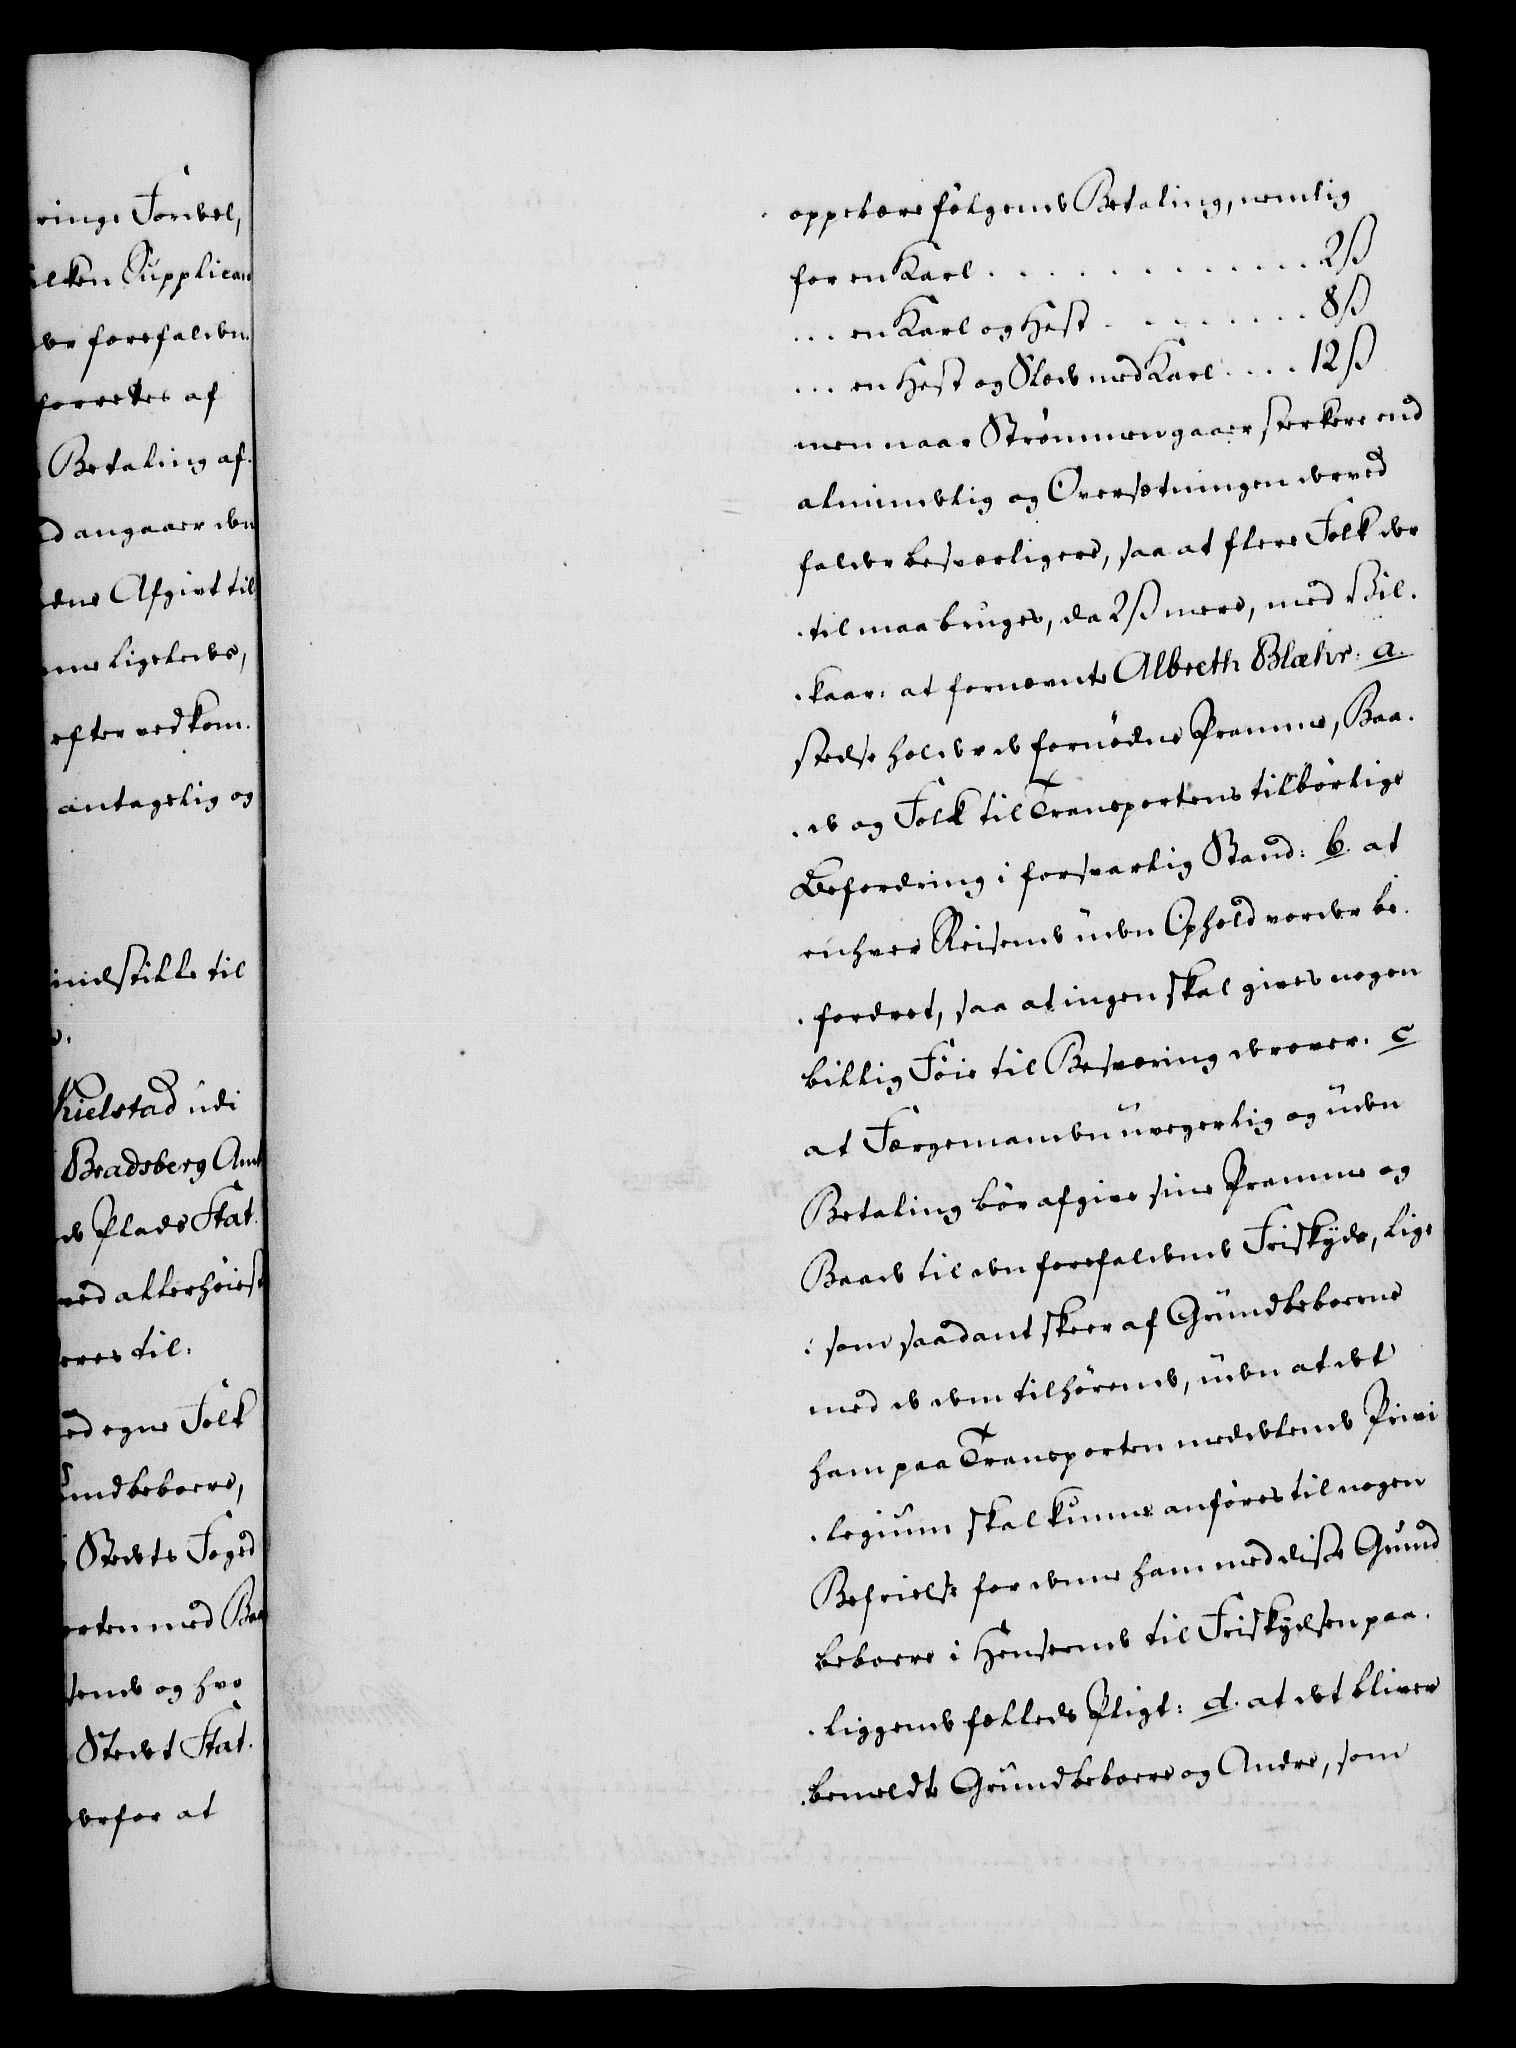 ringe Fordeel,
ilken Supplican
der forefalden.
forrettes af
Betaling af.
d angaaer den
dens Afgivt til
me ligeledes,
efter vedkom.
antagelig og
indstille til
Kielstad udi
Bradsberg Amt
de Plads Stat.
ved allerhöiest
eres til.
ed egne Folk
undbeboere,
Stedets Foged
orten med Baa
tende og hvo
Stedet Stat.
derfor at
oppebære fölgende Betaling, nemlig
for en Karl . . . . . . . . . . . . 2ß
... en Karl og Hest . . . . . . . . 8ß
... en Hest og Slæde med Karl . . . . 12ß
men naar Strömmen gaaer sterkere end
almindelig og Oversætningen derved
falder besværligere, saa at flere Folk der
.til maa bruges, da 2ß mere, med Vil.
.kaar: at fornævnte Albreth Blæhr: a.
stedse holder de fornödne Pramme, Baa.
.de og Folk til Transportens tilbörlige
Befordring i forsvarlig Stand: b. at
enhver Reisende uden Ophold vorder be.
.fordret, saa at ingen skal gives nogen
billig Föie til Besværing derover. c
at Færgemanden uvegerlig og uden
Betaling bör afgive sine Pramme og
Baade til den forefaldende Friskyds, lige
: som saadant skeer af Grundbeboerne
med de dem tilhörende, uden at det
ham paa Transporten meddelende Privi
.legium skal kunne anföres til nogen
Befrielse for denne ham med disse Grund
beboere i Henseende til Friskydsen paa.
.liggende fælleds Pligt: d. at det bliver
bemeldte Grundbeboere og Andre, som